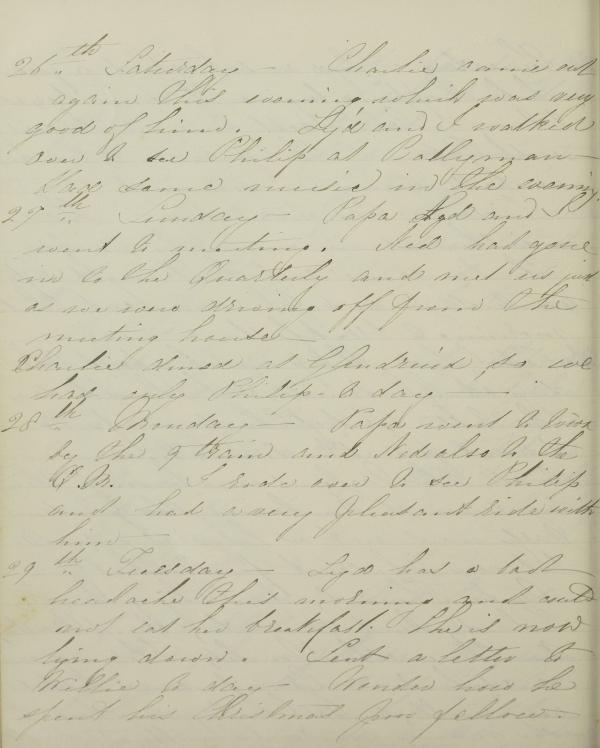 26th Saturday — Charlie came out
again this evening which was very
good of him. Lyd and I walked
over to see Philip at Ballyman —
Had some music in the evening.
27th Sunday — Papa Lyd and I
went to meeting. Ned had gone
in to the Quarterly and met us just
as we were driving off from the
meeting house —
Charlie dined at Glendruid so we
had only Philip to day —
28th Monday — Papa went to town
by the 9 train and Ned also to the
I rode over to see Philip
and had a very pleasant ride with
him —
29th Tuesday — Lyd has a bad
headache this morning and could
not eat her breakfast. She is now
lying down. Sent a letter to
Willie to day — Wonder how he
spent his Christmas poor fellow.